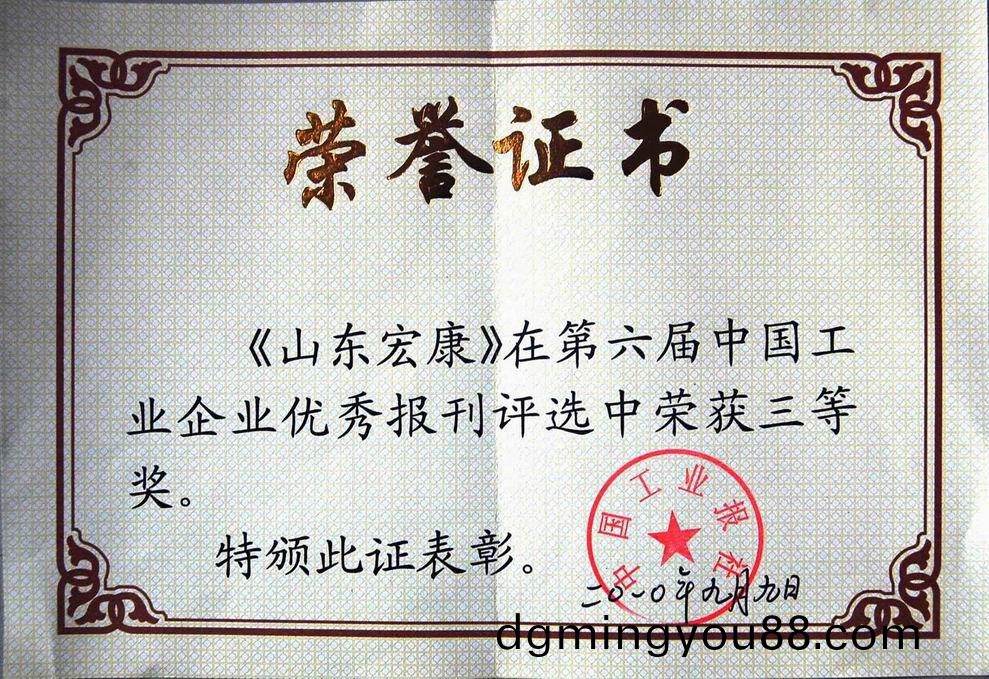 荣誉证书
《山东宏康》在第六届中国工
业企业优秀报刊评选中荣获三等
奖。
特颁此证表彰。
中国工业报社
二〇一〇年九月九日
dgmingyou88.com